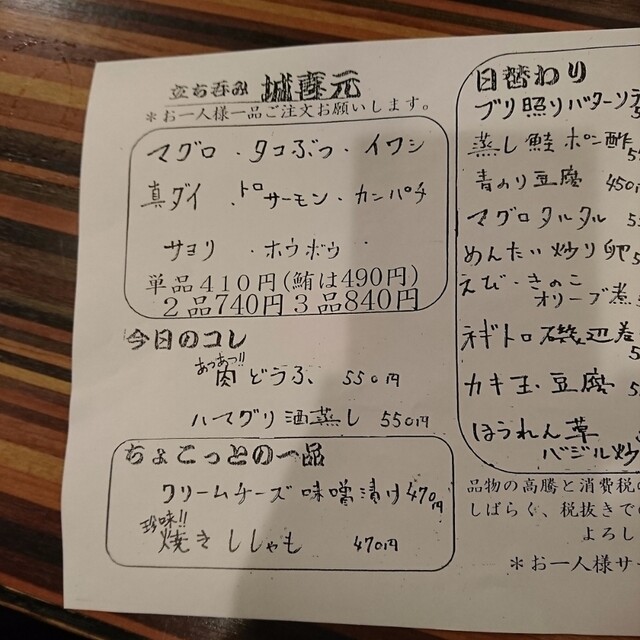 立ち呑み 城喜元
＊お一人様一品ご注文お願いします。
マグロ ・タコぶつ・イワシ
真ダイ ・トロサーモン・カンパチ
サヨリ ・ホウボウ ・
単品４１０円（鮪は490円）
２品740円３品840円
今日のコレ
あつあつ!!
肉どうふ、 550円
ハマグリ酒蒸し 550円
ちょこっとの一品
クリームチーズ味噌漬け470円
珍味!!
焼きししゃも 470円
日替わり
ブリ照りバターソテ
蒸し鮭ポン酢
青のり豆腐 450円
マグロタルタル
めんたい炒り卵
えび・きのこ
オリーブ煮
ネギトロ磯辺巻
カキ玉・豆腐
ほうれん草
バジル炒
品物の高騰と消費税の
しばらく、税抜きでの
よろし
＊お一人様サー